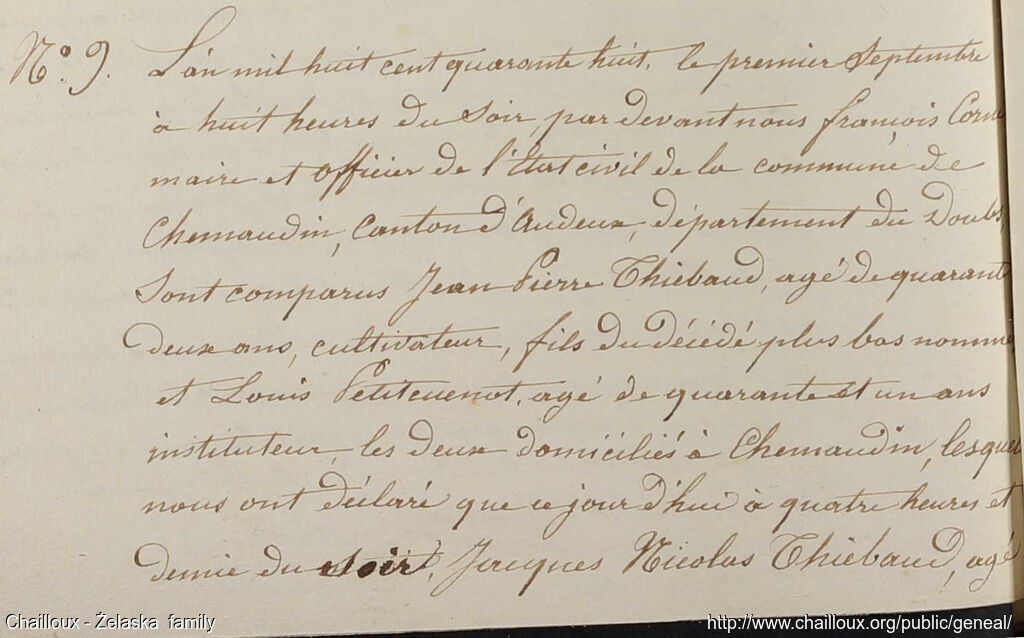 N.° 9. L'an mil huit cent quarante huit, le premier Septembre
à huit heures du soir, par devant nous françois Corne
maire et officier de l'état civil de la commune de
Chemaudin, Canton d'Audeux, département du Doubs,
Sont comparus Jean Pierre Thiebaud, agé de quarante
deux ans, cultivateur, fils du décédé plus bas nommé
et Louis Petitcuenot, agé de quarante et un ans
instituteur, les deux domiciliés à Chemaudin, lesquels
nous ont déclaré que ce jour d'hui à quatre heures et
demie du soir, Jacques Nicolas Thiebaud, agé
Chailloux - Żelaska family
http://www.chailloux.org/public/geneal/